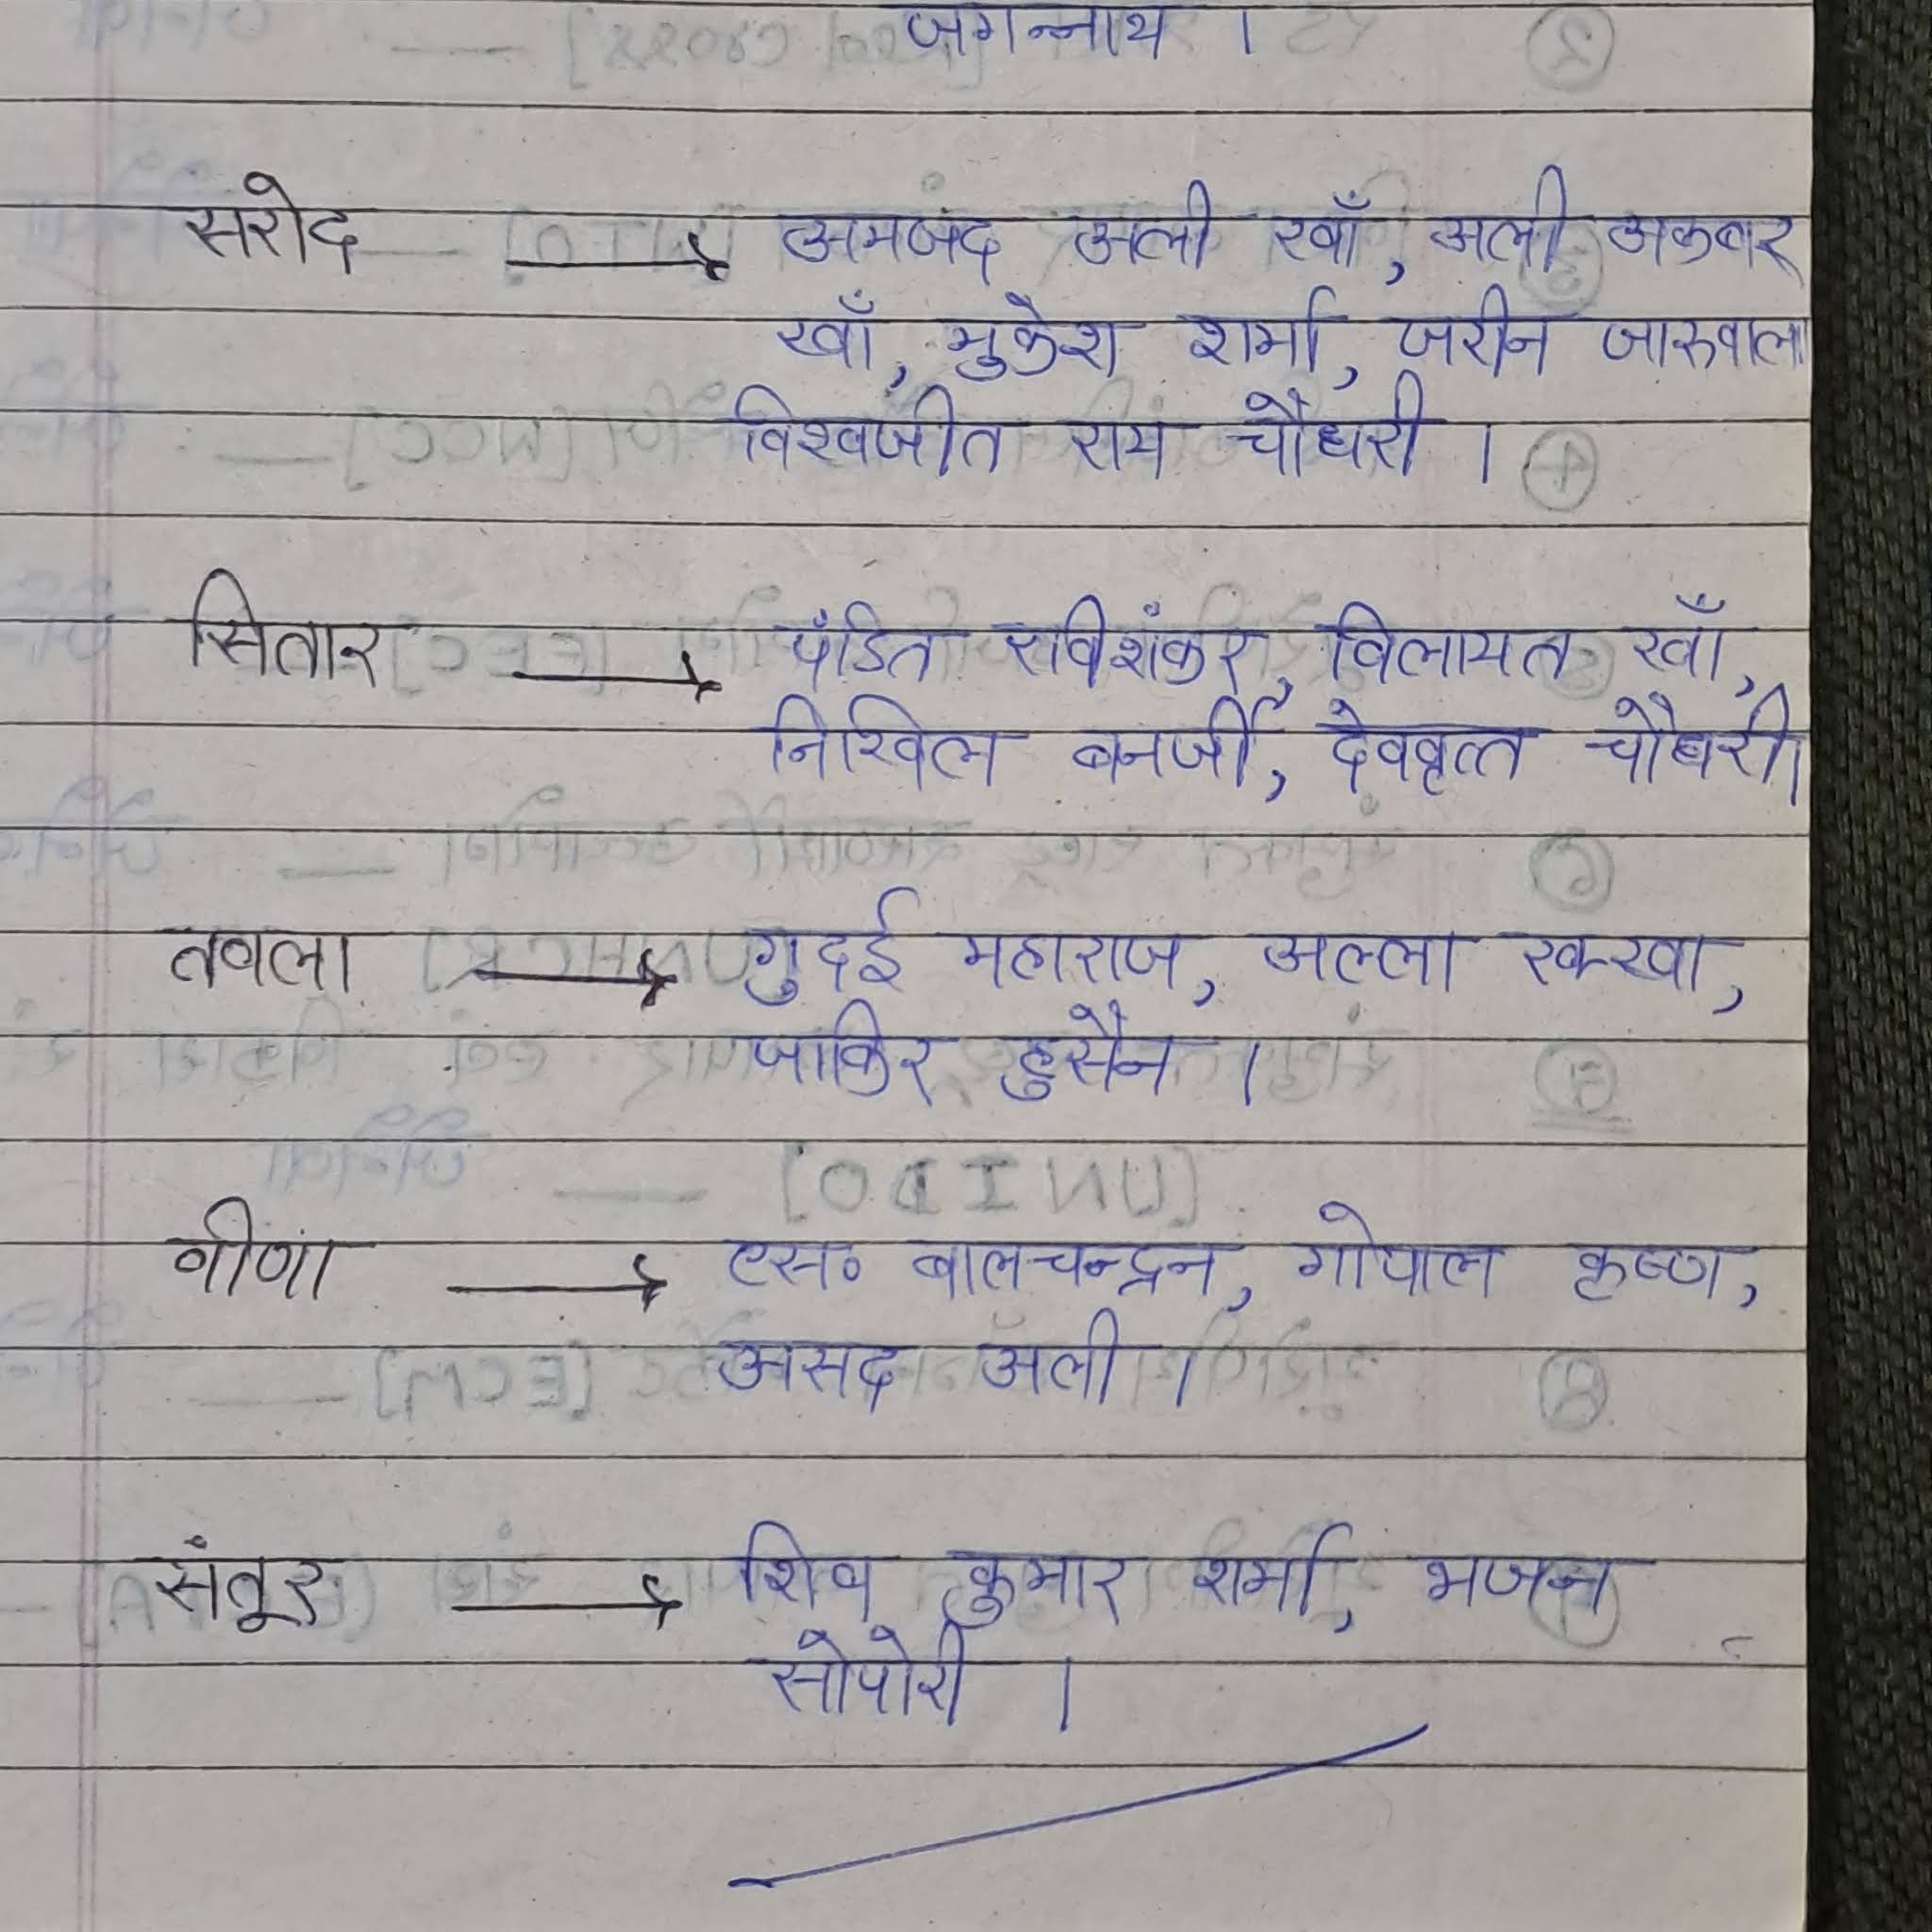 जगन्नाथ ।
सरोद → अमजद अली खाँ, अली अकबर
खाँ, मुकेश शर्मा, जरीन जारुवाला
विश्वजीत राय चौधरी ।
सितार → पंडित रविशंकर, विलायत खाँ,
निखिल बनर्जी, देवव्रत्त चौधरी।
तबला → गुदई महाराज, अल्ला रक्खा,
जाकिर हुसैन ।
वीणा → एस० बालचन्द्रन, गोपाल कृष्ण,
असद अली ।
संतूर → शिव कुमार शर्मा, भजन
सोपोरी ।